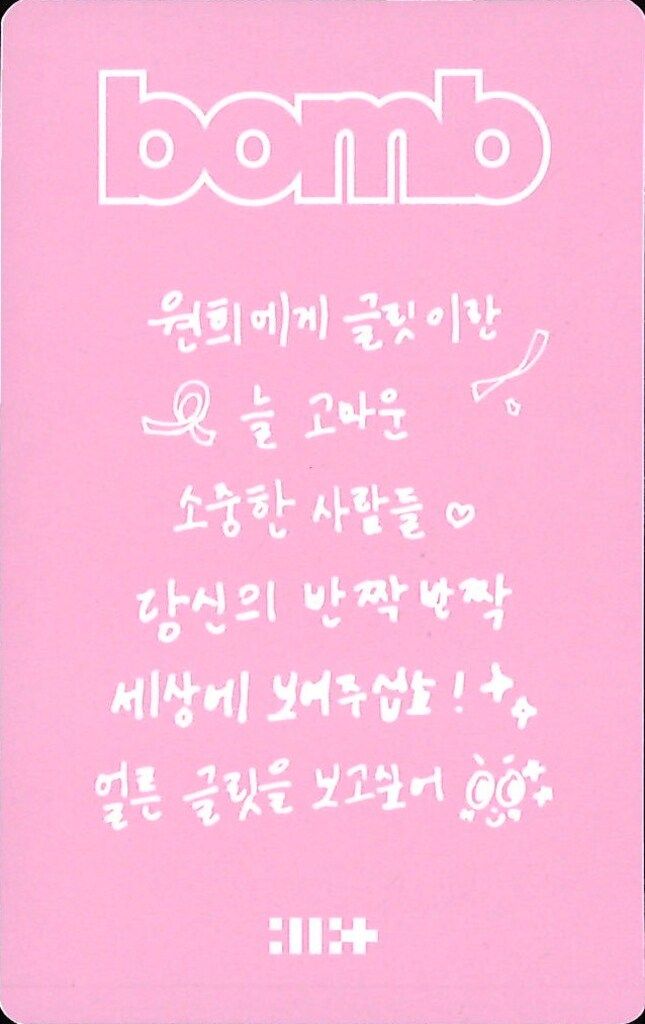 bomb
원희에게 글릿이란
늘 고마운
소중한 사람들 ♡
당신의 반짝반짝
세상에 보여주십쇼!
얼른 글릿을 보고싶어